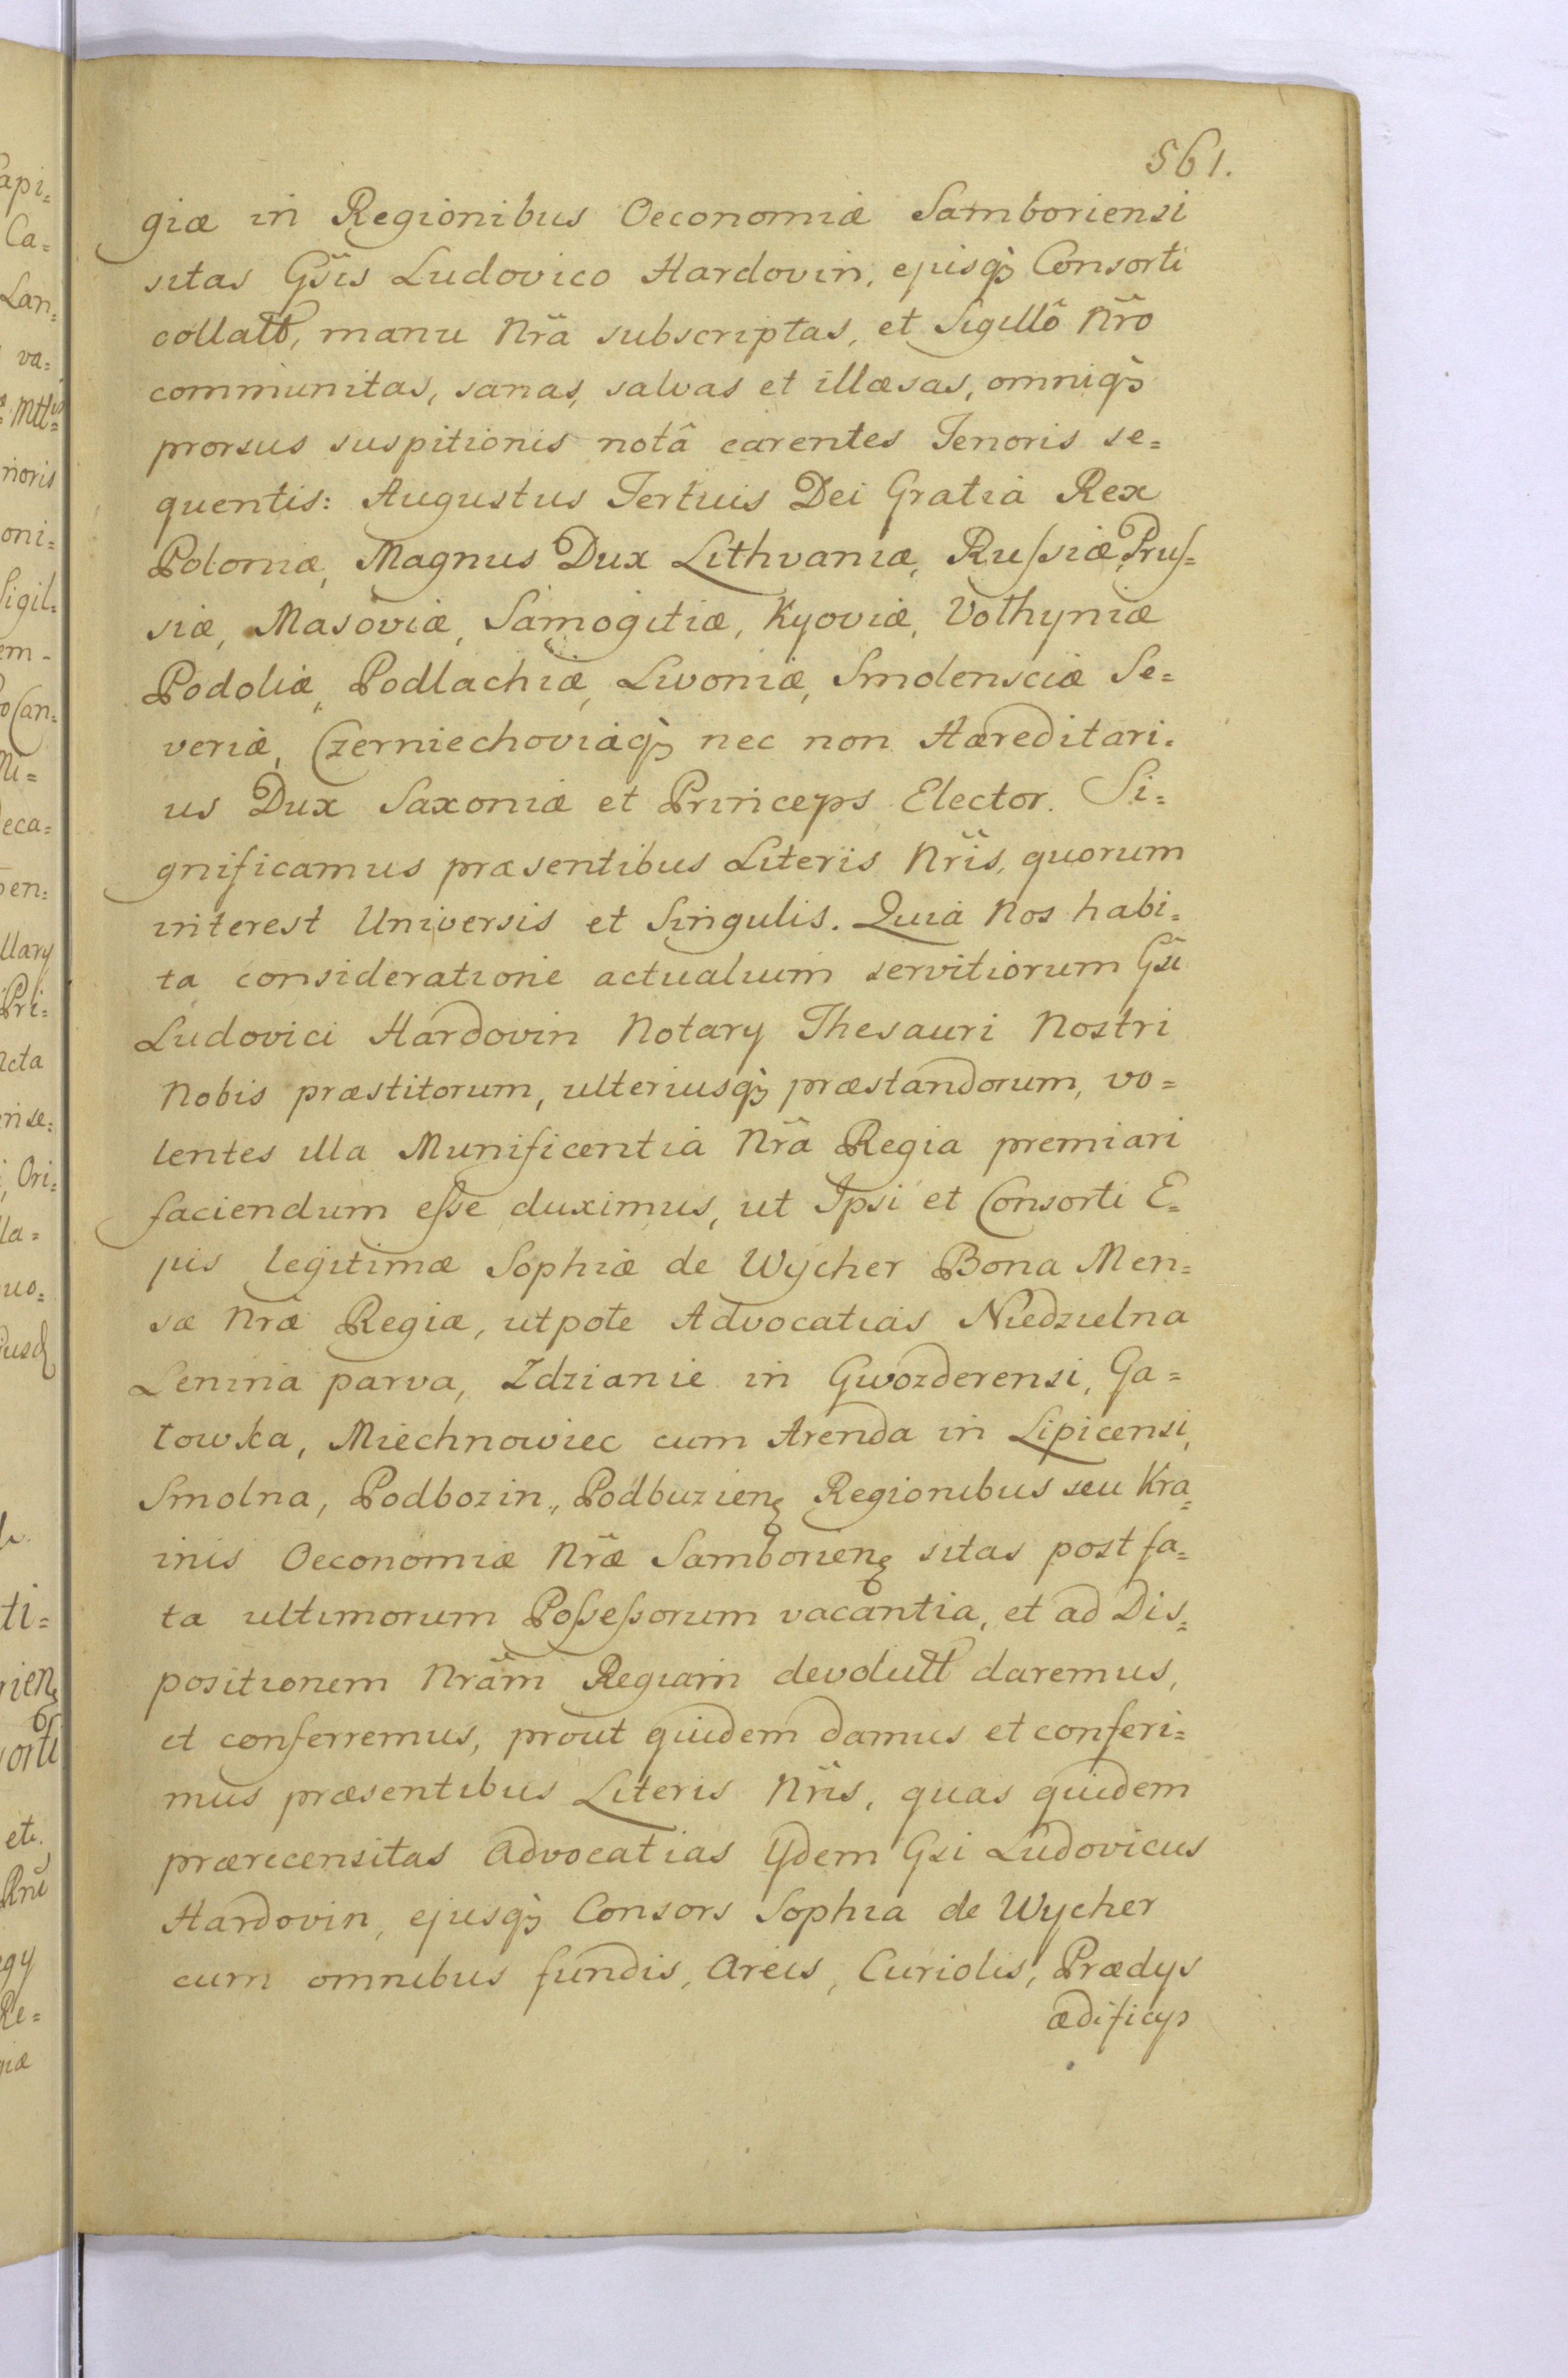 561.
giæ in Regionibus Oeconomiæ Samboriensi
sitas Gsĩs Ludovico Hardovin, ejusq₃ Consorti
collatt, manu Nrã subscriptas, et Sigillô Nrõ
communitas, sanas, salvas et illæsas, omniq₃
prorsus suspitionis notâ carentes Tenoris se=
quentis: Augustus Tertius Dei Gratia Rex
Poloniæ, Magnus Dux Lithvaniæ, Ruſsiæ, Pruſ=
siæ, Masoviæ, Samogitiæ, Kyoviæ, Volhyniæ
Podoliæ, Podlachiæ, Livoniæ, Smolensciæ Se=
veriæ, Czerniechoviæq₃ nec non Hæreditari=
us Dux Saxoniæ et Princeps Elector. Si=
gnificamus præsentibus Literis Nrĩs, quorum
interest Universis et Singulis. Quia Nos habi=
ta consideratione actualium servitiorum Gsĩ
Ludovici Hardovin Notary Thesauri Nostri
Nobis præstitorum, ulteriusq₃ præstandorum, vo=
lentes illa Munificentia Nrã Regia premiari
faciendum eſse duximus, ut Ipsi et Consorti E=
jus legitimæ Sophiæ de Wycher Bona Men=
sæ Nræ Regiæ, utpote Advocatias Niedzielna
Lenina parva, Zdzianie in Gwozderensi, Ga=
towka, Miechnowiec cum Arenda in Lipicensi,
Smolna, Podbozin, Podbuzien₃ Regionibus seu Kra=
inis Oeconomiæ Nræ Samborien₃ sitas post fa=
ta ultimorum Poſseſsorum vacantia, et ad Dis=
positionem Nrãm Regiam devolutt daremus,
et conferremus, prout quidem damus et conferi=
mus præsentibus Literis Nrĩs, quas quidem
prærecensitas Advocatias Ydem Gsi Ludovicus
Hardovin, ejusq₃ Consors Sophia de Wycher
cum omnibus fundis, Areis, Curiolis, Prædys
ædificys